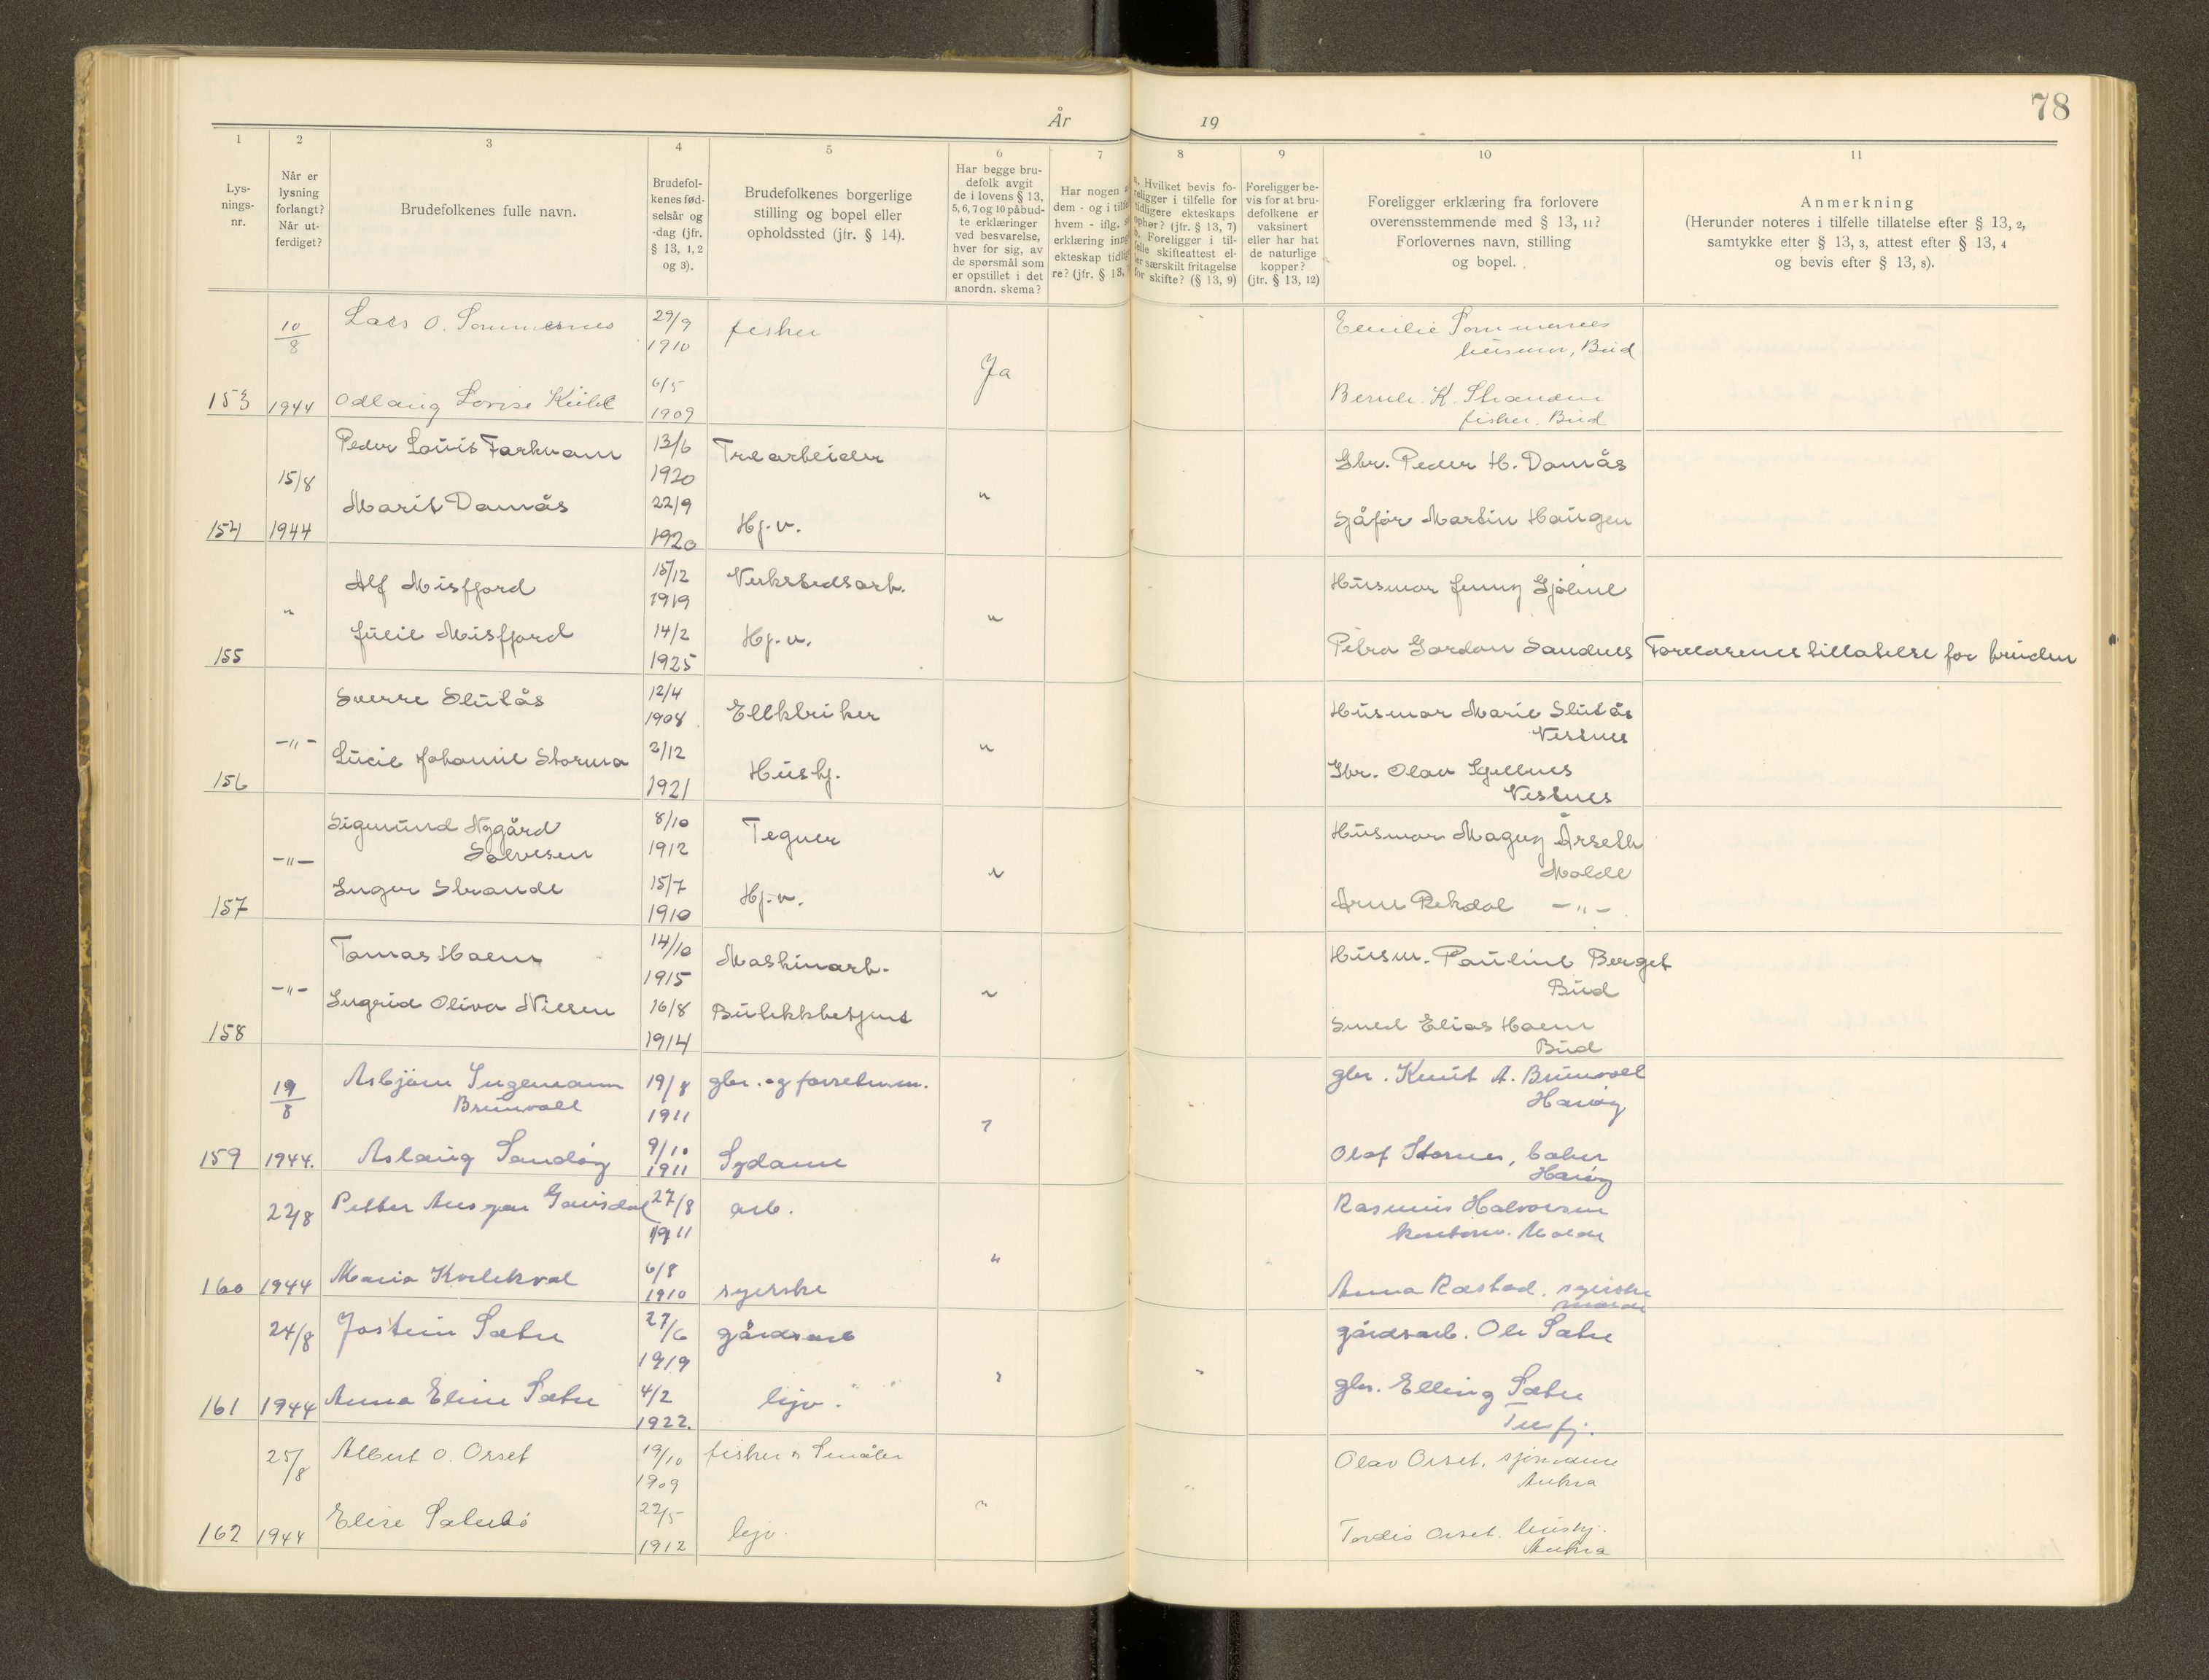 78
År 19
1 2 3 4 5 6 7 8 9 10 11
Lys-
nings-
nr.
Når er
lysning
forlangt?
Når ut-
ferdiget?
Brudefolkenes fulle navn.
Brudefol-
kenes fød-
selsår og
-dag (jfr.
§ 13, 1, 2
og 3).
Brudefolkenes borgerlige
stilling og bopel eller
opholdssted (jfr. § 14).
Har begge bru-
defolk avgit
de i lovens § 13,
5, 6, 7 og 10 påbud-
te erklæringer
ved besvarelse,
hver for sig, av
de spørsmål som
er opstillet i det
anordn. skema?
Har nogen
dem - og i
hvem - iflg.
erklæring
ekteskap
re? (jfr. § 13,
Hvilket bevis fo-
religger i tilfelle for
tidligere ekteskaps
ophør? (jfr. § 13, 7)
Foreligger i til-
felle skifteattest el-
ler særskilt fritagelse
for skifte? (§ 13, 9)
Foreligger be-
vis for at bru-
defolkene er
vaksinert
eller har hat
de naturlige
kopper?
(jfr. § 13, 12)
Foreligger erklæring fra forlovere
overensstemmende med § 13, 11?
Forlovernes navn, stilling
og bopel.
Anmerkning
(Herunder noteres i tilfelle tillatelse efter § 13, 2,
samtykke efter § 13, 3, attest efter § 13, 4
og bevis efter § 13, 8).
10/8 Lars O. Sommernes 29/9 1910 fisker Emilie Sommernes
husmor, Bud
Ja
153 1944 Odlaug Lovise 6/5 1909 Bernh. K. Strande
fisker, Bud
15/8 Peder Louis Farkvam 13/6 1920 Trearbeider Gbr. Peder H. Damås
154 1944 Marit Damås 22/9 1920 Hj.v. " Sjåfør Martin Haugen
" Alf Misfjord 15/12 1919 Verkstedsarb. " Husmor Jenny Gjølme
155 Julie Misfjord 14/2 1925 Hj.v. Petra Gordon Sandnes Foreldrenes tillatelse for bruden
Sverre Slutås 12/4 1908 Elektriker Husmor Marie Slutås
Vestnes
-"- Lucie Johanne Storma 3/12 1921 Hushj. " Gbr. Olav Gjelnes
156 Vestnes
Sigmund Nygård
Salvesen 8/10 1912 Tegner Husmor Magny Årseth
Molde
-"- Inger Strande 15/7 1910 Hj.v. " Arne Rekdal -"-
157
Tomas Haem 14/10 1915 Maskinarb. Husm. Pauline Berget
Bud
-"- Ingrid Oliva Nilsen 16/8 1914 Butikkbetjent " Smed Elias Haem
158 Bud
19/8 Asbjørn Ingemann
Brunvoll 19/8 1911 gbr. og forretn.m. gbr. Knut A. Brunvoll
Harøy
159 1944. Aslaug Sandøy 9/10 1911 Sydame " Olaf Stornes, baker
Harøy
22/8 Petter Ansgar Gausdal 27/8 1911 arb. Rasmus Halvorsen
Molde
160 1944 Maria 6/8 1910 syerske " Anna Røstad, syerske
Molde
24/8 Jostein Sæter 27/6 1919 gårdsarb gårdsarb. Ole Sæter
161 1944 Anna Eline Sæter 4/2 1922. hjv. " gbr. Elling Sæter
25/8 Albert O. Orset 19/10 1909 fisker Olav Orset, sjømann
Aukra
162 1944 Elise Sæterbø 22/5 1912 hjv. " Tordis Orset, hushj.
Aukra